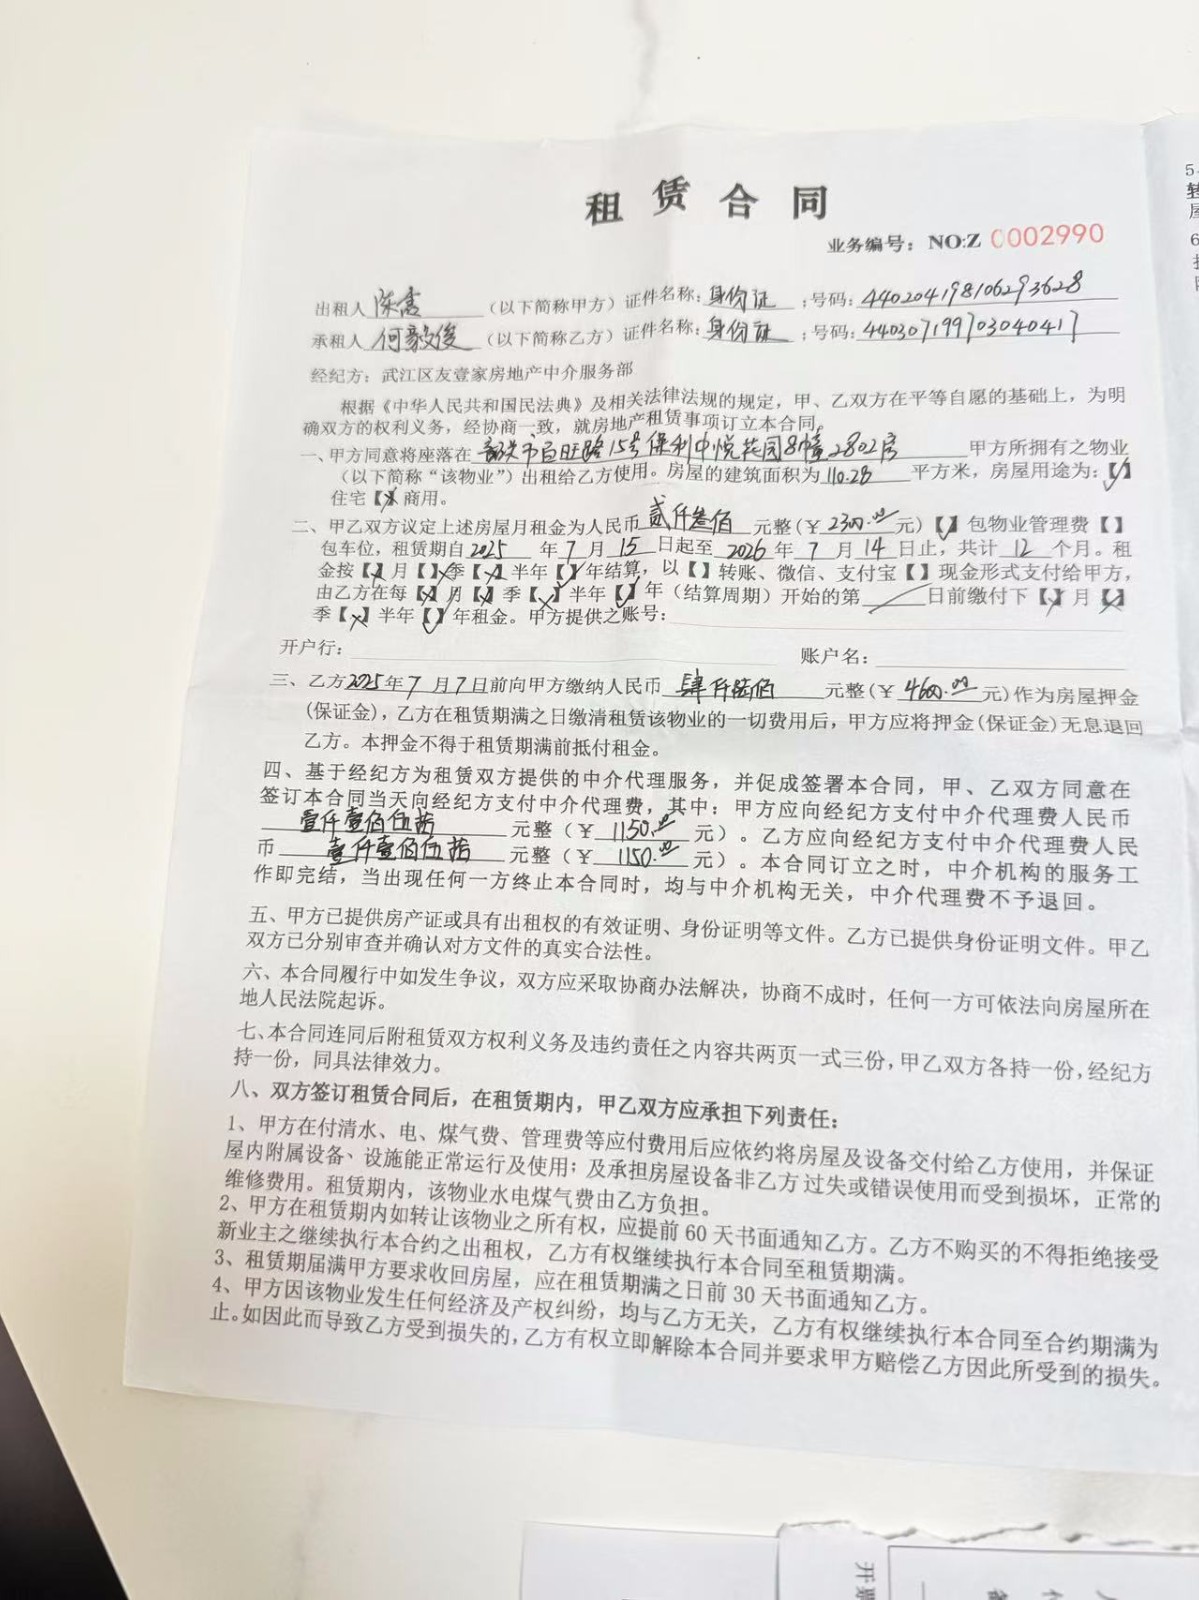 租赁合同
业务编号：NO:Z 0002990
出租人 陈 （以下简称甲方）证件名称：身份证；号码：440204198106293628
承租人 何毅俊 （以下简称乙方）证件名称：身份证；号码：440307199703040417
经纪方：武江区友壹家房地产中介服务部
根据《中华人民共和国民法典》及相关法律法规的规定，甲、乙双方在平等自愿的基础上，为明
确双方的权利义务，经协商一致，就房地产租赁事项订立本合同。
一、甲方同意将座落在 韶关市百旺路15号保利中悦花园8幢2802房 甲方所拥有之物业
（以下简称“该物业”）出租给乙方使用。房屋的建筑面积为 110.28 平方米，房屋用途为：【✓】
住宅【×】商用。
二、甲乙双方议定上述房屋月租金为人民币 贰仟叁佰 元整(￥2300.00元)【✓】包物业管理费【】
包车位，租赁期自2025年7月15日起至2026年7月14日止，共计12个月。租
金按【×】月【×】季【×】半年【✓】年结算，以【】转账、微信、支付宝【】现金形式支付给甲方，
由乙方在每【×】月【×】季【×】半年【✓】年（结算周期）开始的第 ／ 日前缴付下【×】月【×】
季【×】半年【✓】年租金。甲方提供之账号：
开户行： 账户名：
三、乙方2025年7月7日前向甲方缴纳人民币 肆仟陆佰 元整(￥4600.00元)作为房屋押金
(保证金)，乙方在租赁期满之日缴清租赁该物业的一切费用后，甲方应将押金(保证金)无息退回
乙方。本押金不得于租赁期满前抵付租金。
四、基于经纪方为租赁双方提供的中介代理服务，并促成签署本合同，甲、乙双方同意在
签订本合同当天向经纪方支付中介代理费，其中：甲方应向经纪方支付中介代理费人民币
壹仟壹佰伍拾 元整（￥1150.00元）。乙方应向经纪方支付中介代理费人民
币 壹仟壹佰伍拾 元整（￥1150.00元）。本合同订立之时，中介机构的服务工
作即完结，当出现任何一方终止本合同时，均与中介机构无关，中介代理费不予退回。
五、甲方已提供房产证或具有出租权的有效证明、身份证明等文件。乙方已提供身份证明文件。甲乙
双方已分别审查并确认对方文件的真实合法性。
六、本合同履行中如发生争议，双方应采取协商办法解决，协商不成时，任何一方可依法向房屋所在
地人民法院起诉。
七、本合同连同后附租赁双方权利义务及违约责任之内容共两页一式三份，甲乙双方各持一份，经纪方
持一份，同具法律效力。
八、双方签订租赁合同后，在租赁期内，甲乙双方应承担下列责任：
1、甲方在付清水、电、煤气费、管理费等应付费用后应依约将房屋及设备交付给乙方使用，并保证
屋内附属设备、设施能正常运行及使用；及承担房屋设备非乙方过失或错误使用而受到损坏，正常的
维修费用。租赁期内，该物业水电煤气费由乙方负担。
2、甲方在租赁期内如转让该物业之所有权，应提前60天书面通知乙方。乙方不购买的不得拒绝接受
新业主之继续执行本合约之出租权，乙方有权继续执行本合同至租赁期满。
3、租赁期届满甲方要求收回房屋，应在租赁期满之日前30天书面通知乙方。
4、甲方因该物业发生任何经济及产权纠纷，均与乙方无关，乙方有权继续执行本合同至合约期满为
止。如因此而导致乙方受到损失的，乙方有权立即解除本合同并要求甲方赔偿乙方因此所受到的损失。